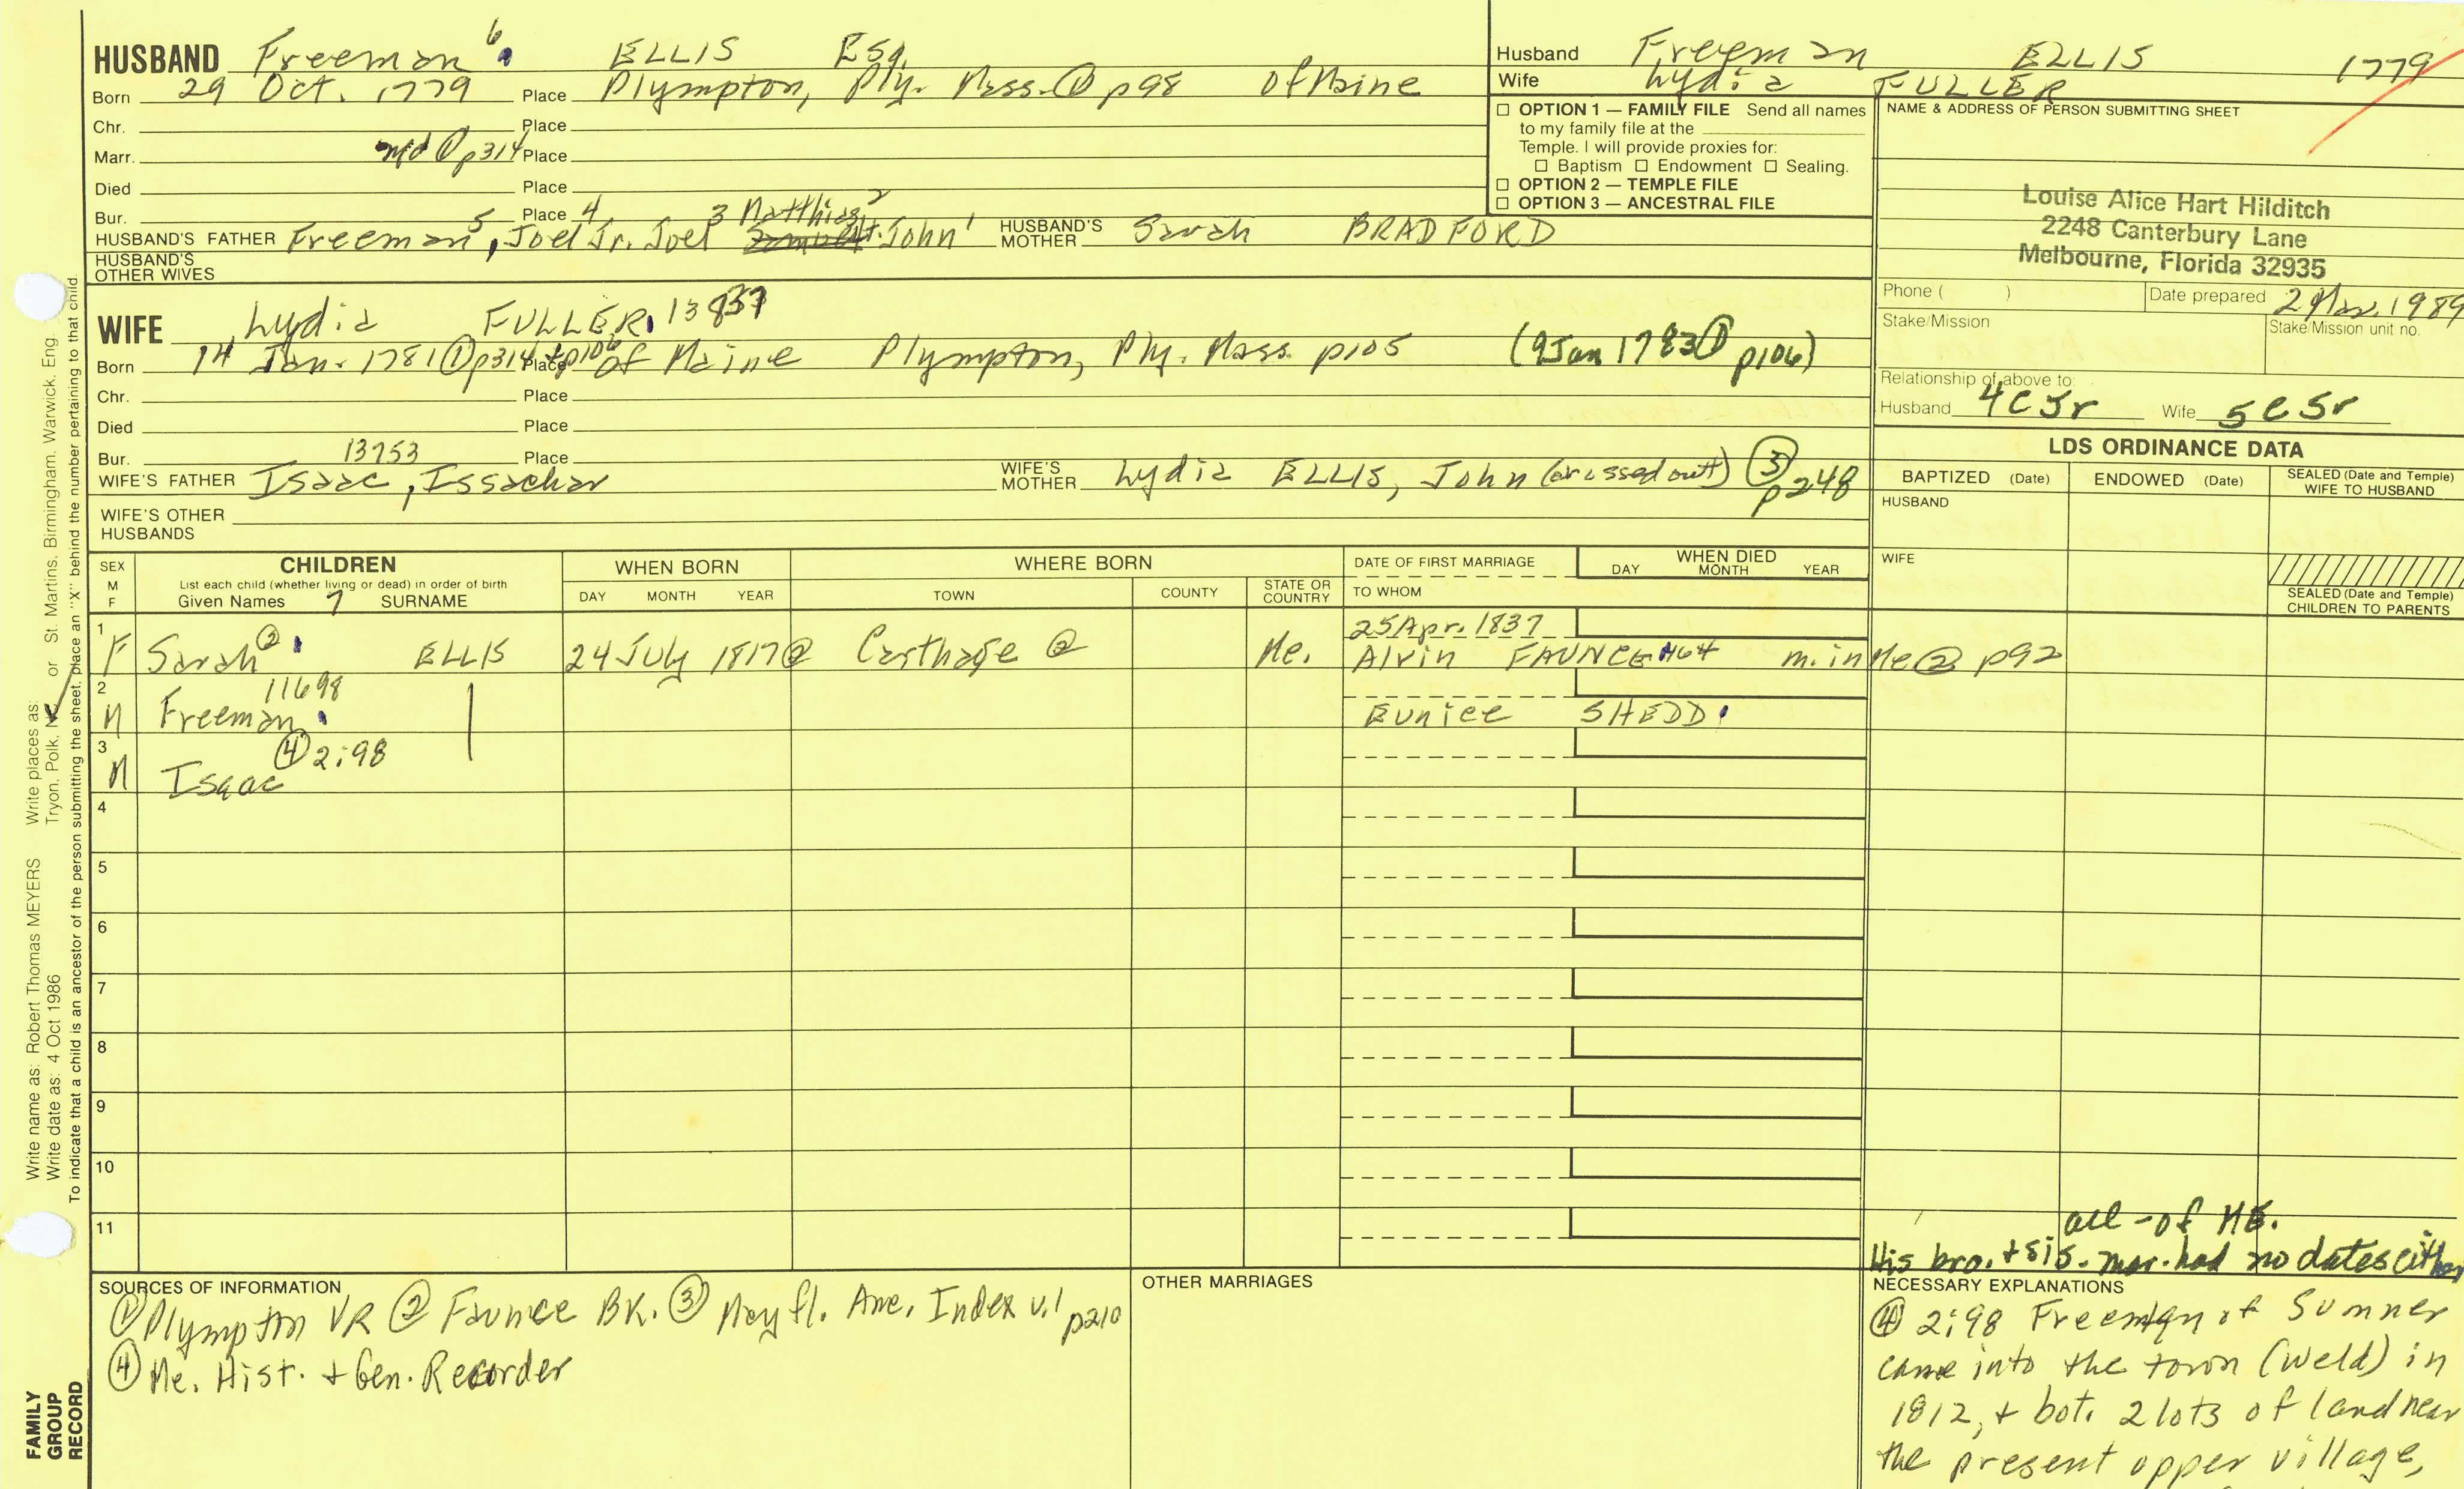 HUSBAND Freeman 6 ELLIS Esq.
Born 29 Oct. 1779 Place Plympton, Ply. Mass. ① p98 of Maine
Chr. Place
Marr. md ① p314 Place
Died Place
Bur. Place
HUSBAND'S FATHER Freeman 5, Joel Jr. 4 Joel 3 Matthias 2 John 1 HUSBAND'S MOTHER Sarah BRADFORD
HUSBAND'S OTHER WIVES
WIFE Lydia FULLER 13837
Born 14 Jan. 1781 ① p314 + p106 Place of Maine Plympton, Ply. Mass. p105 (9 Jan 1783 ① p106)
Chr. Place
Died Place
Bur. Place
13753
WIFE'S FATHER Isaac, Issachar WIFE'S MOTHER Lydia ELLIS, John (crossed out) ③ p248
WIFE'S OTHER HUSBANDS
Husband Freeman ELLIS 1779
Wife Lydia FULLER
☐ OPTION 1 — FAMILY FILE Send all names
to my family file at the
Temple. I will provide proxies for:
☐ Baptism ☐ Endowment ☐ Sealing.
☐ OPTION 2 — TEMPLE FILE
☐ OPTION 3 — ANCESTRAL FILE
NAME & ADDRESS OF PERSON SUBMITTING SHEET
Louise Alice Hart Hilditch
2248 Canterbury Lane
Melbourne, Florida 32935
Phone ( ) Date prepared 2 Mar. 1989
Stake/Mission Stake/Mission unit no.
Relationship of above to:
Husband 4C Jr Wife 5C Sr
LDS ORDINANCE DATA
BAPTIZED (Date) ENDOWED (Date) SEALED (Date and Temple) WIFE TO HUSBAND
HUSBAND
WIFE
SEALED (Date and Temple) CHILDREN TO PARENTS
SEX M F
CHILDREN
List each child (whether living or dead) in order of birth
Given Names 7 SURNAME
WHEN BORN
DAY MONTH YEAR
WHERE BORN
TOWN COUNTY STATE OR COUNTRY
DATE OF FIRST MARRIAGE
TO WHOM
WHEN DIED
DAY MONTH YEAR
1 F Sarah ② ELLIS 24 July 1817 ② Carthage ② Me. 25 Apr. 1837
Alvin FAUNCE m. in Me ② p92
2 M Freeman 11698 Eunice SHEDD
3 M Isaac ④ 2:98
4
5
6
7
8
9
10
11
all - of ME.
His bro. + sis. mar. had no dates either
SOURCES OF INFORMATION
① Plympton VR ② Faunce BK. ③ Mayfl. Anc. Index v.1 p210
④ Me. Hist. + Gen. Recorder
OTHER MARRIAGES
NECESSARY EXPLANATIONS
④ 2:98 Freeman of Sumner
came into the town (Weld) in
1812, + bot. 2 lots of land near
the present upper village,
Write name as: Robert Thomas MEYERS Write places as:
Write date as: 4 Oct 1986 Tryon, Polk, or St. Martins, Birmingham, Warwick, Eng.
To indicate that a child is an ancestor of the person submitting the sheet, place an "X" behind the number pertaining to that child.
FAMILY
GROUP
RECORD